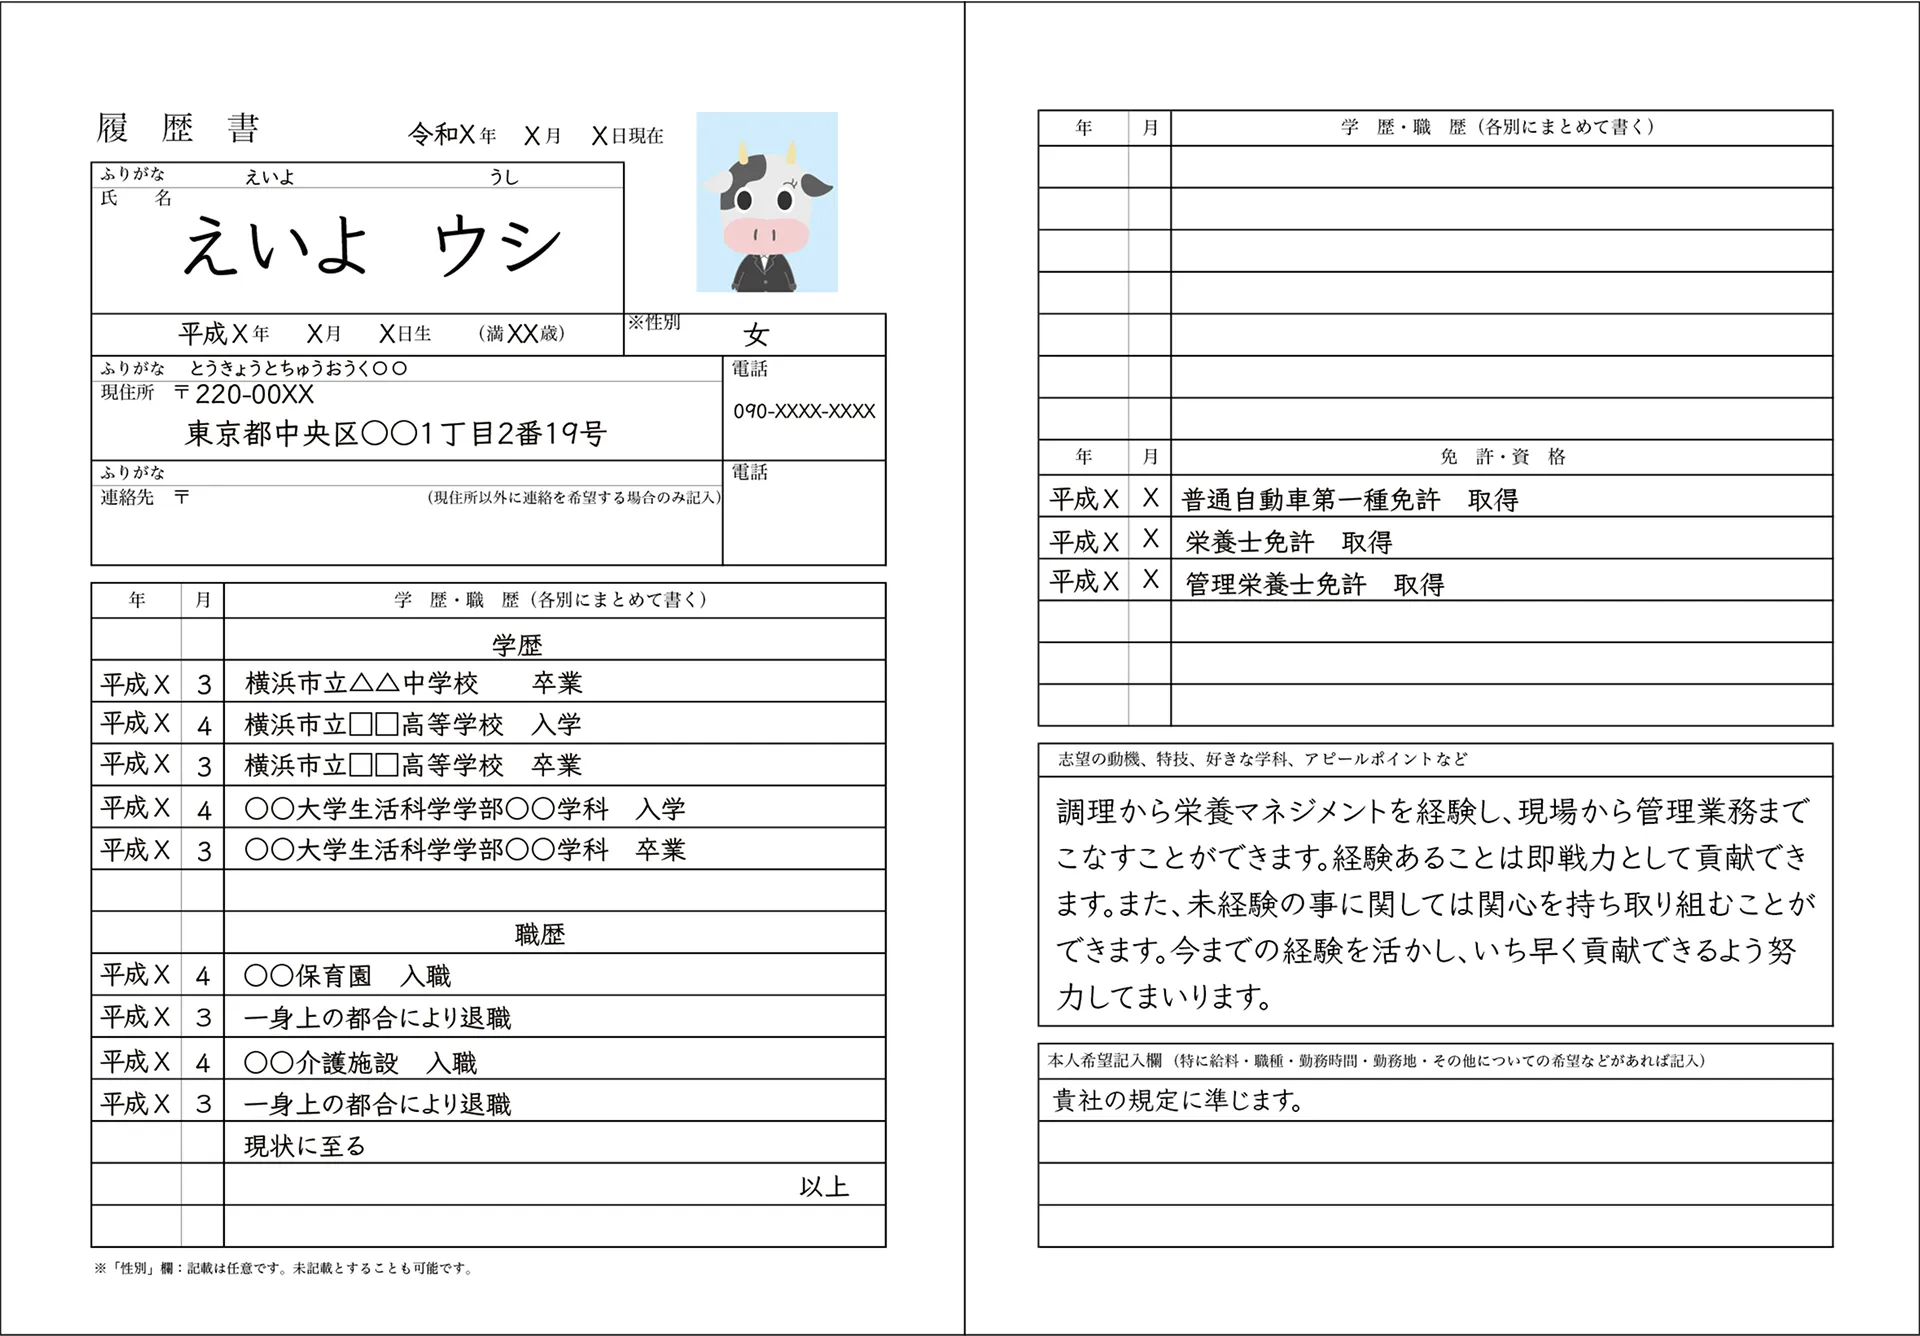 履 歴 書
令和X年 X月 X日現在
ふりがな えいよ うし
氏 名
えいよ ウシ
平成X年 X月 X日生 （満XX歳）
※性別 女
ふりがな とうきょうとちゅうおうく〇〇
現住所 〒220-00XX
東京都中央区〇〇1丁目2番19号
電話
090-XXXX-XXXX
ふりがな
連絡先 〒 （現住所以外に連絡を希望する場合のみ記入）
電話
年 月 学 歴・職 歴（各別にまとめて書く）
学歴
平成X 3 横浜市立△△中学校 卒業
平成X 4 横浜市立□□高等学校 入学
平成X 3 横浜市立□□高等学校 卒業
平成X 4 〇〇大学生活科学学部〇〇学科 入学
平成X 3 〇〇大学生活科学学部〇〇学科 卒業
職歴
平成X 4 〇〇保育園 入職
平成X 3 一身上の都合により退職
平成X 4 〇〇介護施設 入職
平成X 3 一身上の都合により退職
現状に至る
以上
※「性別」欄：記載は任意です。未記載とすることも可能です。
年 月 学 歴・職 歴（各別にまとめて書く）
年 月 免 許・資 格
平成X X 普通自動車第一種免許 取得
平成X X 栄養士免許 取得
平成X X 管理栄養士免許 取得
志望の動機、特技、好きな学科、アピールポイントなど
調理から栄養マネジメントを経験し、現場から管理業務まで
こなすことができます。経験あることは即戦力として貢献でき
ます。また、未経験の事に関しては関心を持ち取り組むことが
できます。今までの経験を活かし、いち早く貢献できるよう努
力してまいります。
本人希望記入欄（特に給料・職種・勤務時間・勤務地・その他についての希望などがあれば記入）
貴社の規定に準じます。